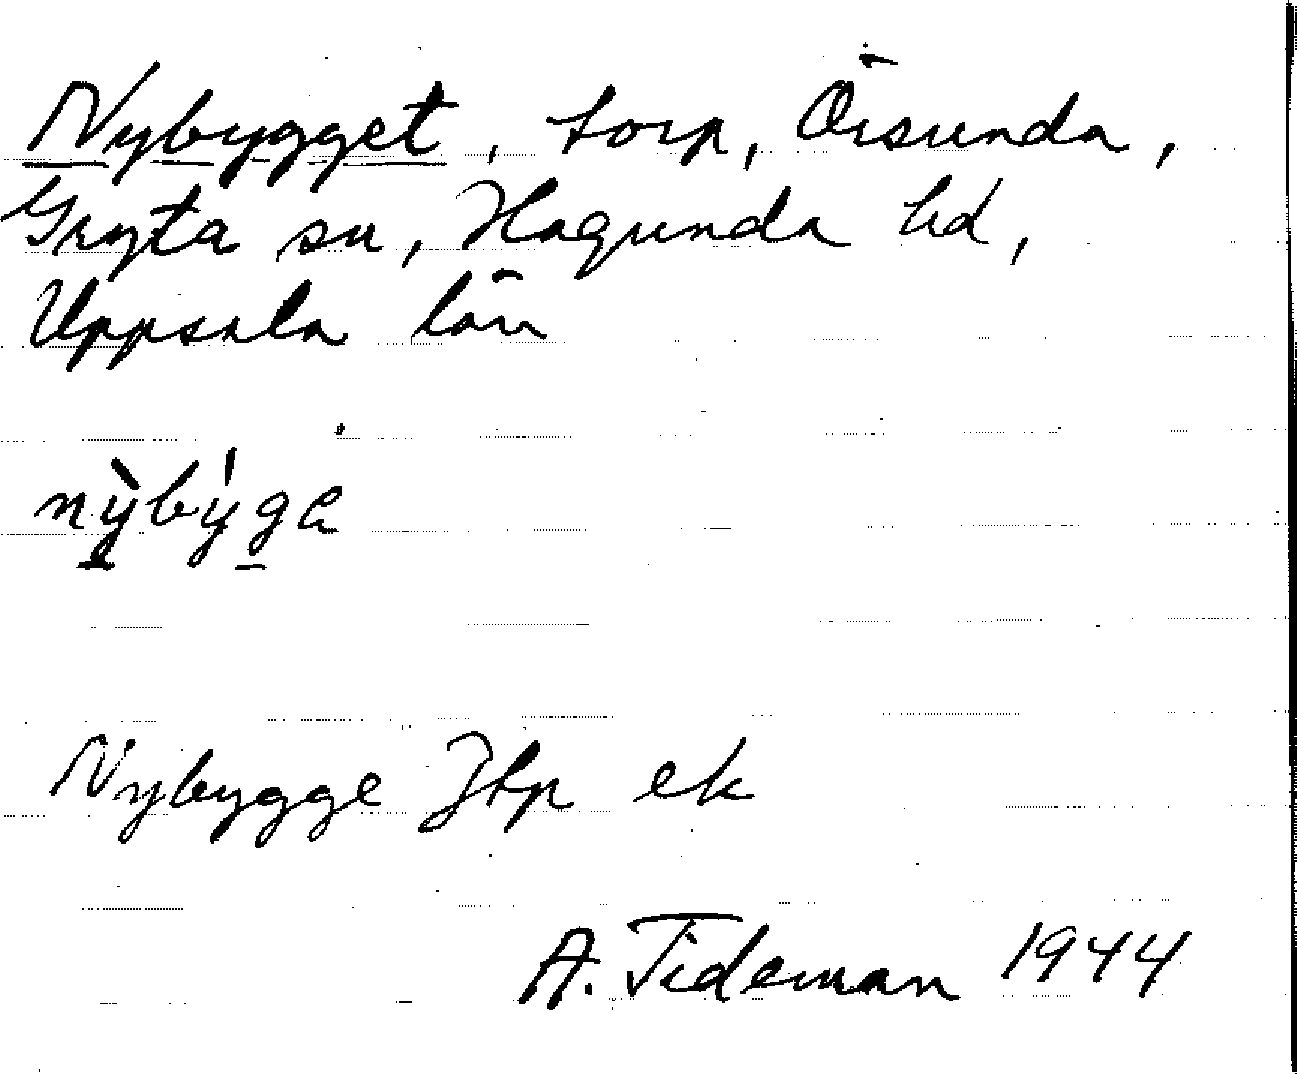 Nybygget, torp, Örsunda,
Gryta sn, Hagunda hd,
Uppsala län
nỳbýga
Nybygge Jbp ek
A. Tideman 1944